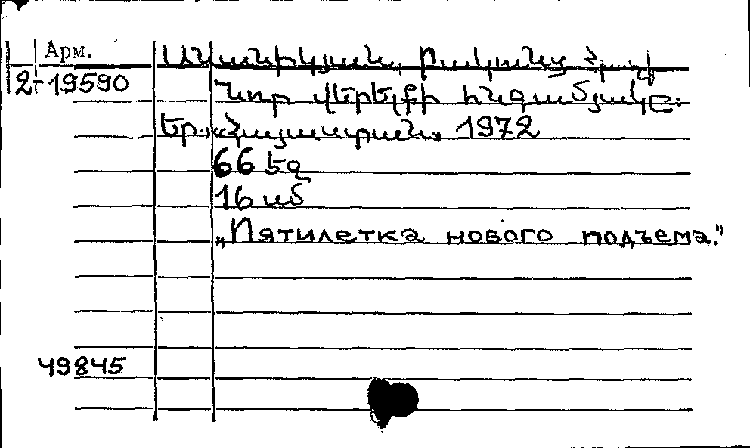 Арм.
2-19590
Նոր վերելքի հնգամյակը։
Եր. «Հայաստան» 1972
66 էջ
16 սմ
„Пятилетка нового подъема.”
49845